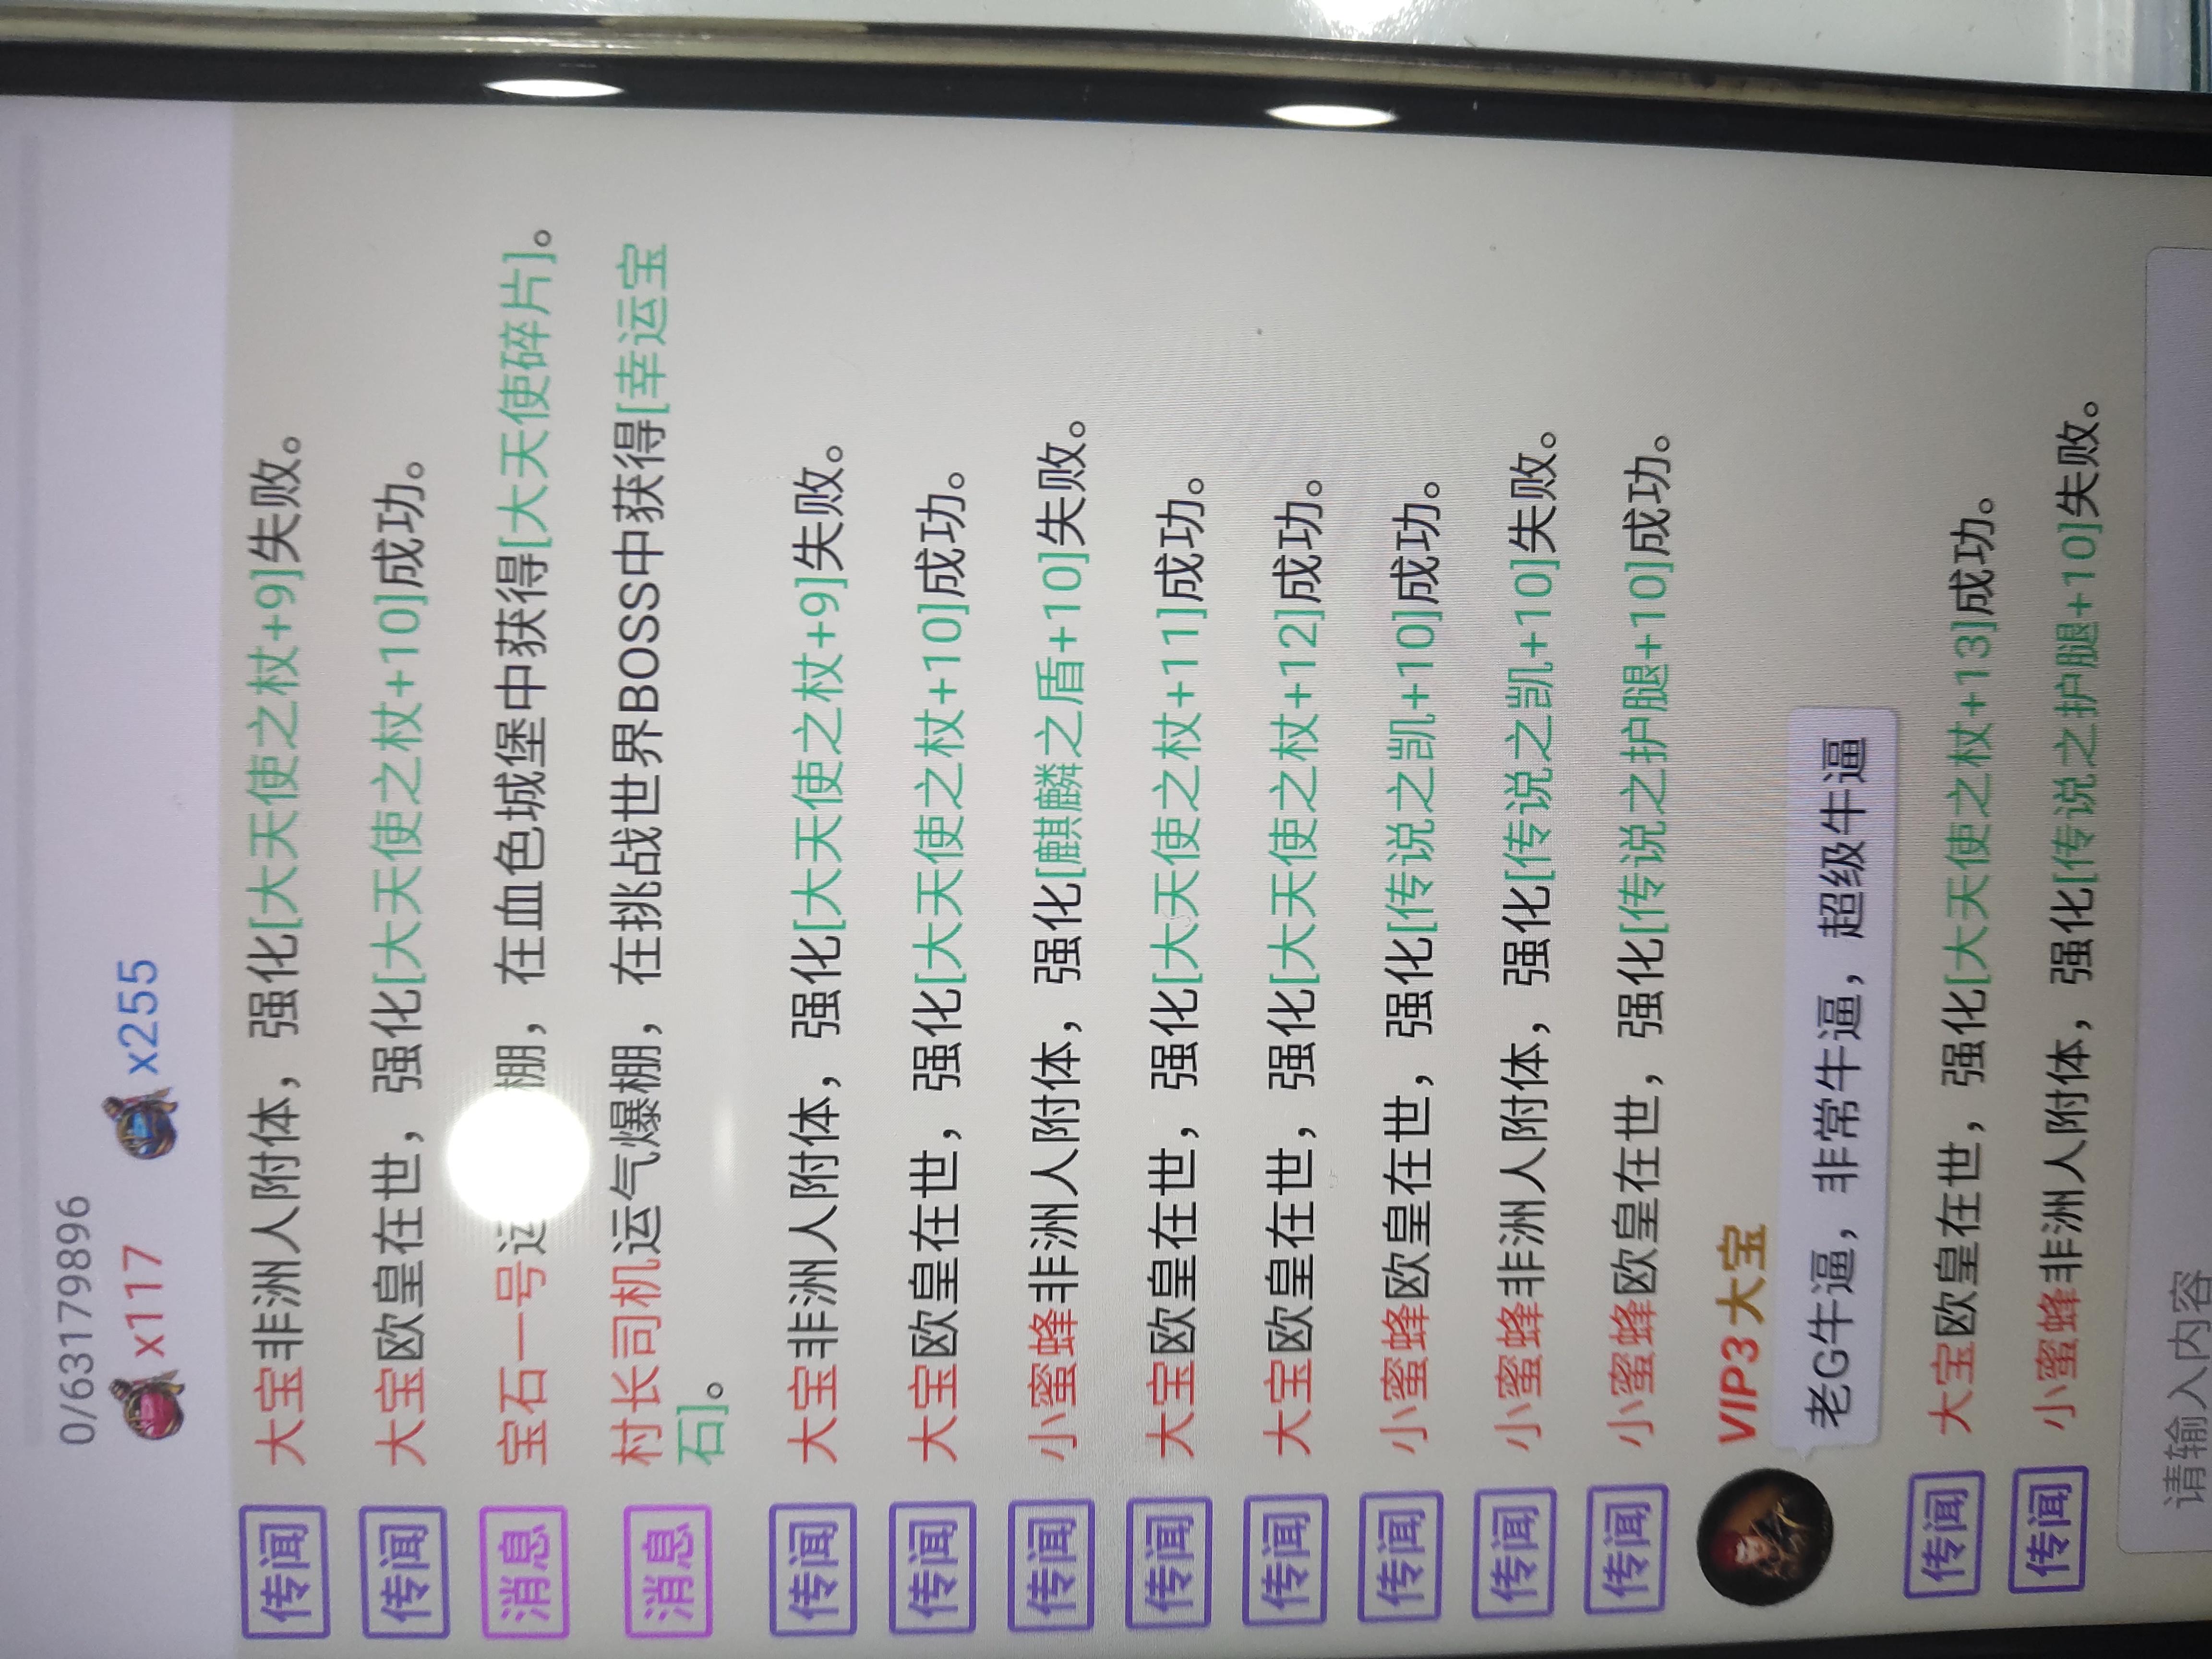 0/63179896
x117 x255
传闻 大宝非洲人附体，强化[大天使之杖+9]失败。
传闻 大宝欧皇在世，强化[大天使之杖+10]成功。
消息 宝石一号运 棚，在血色城堡中获得[大天使碎片]。
消息 村长司机运气爆棚，在挑战世界BOSS中获得[幸运宝
石]。
传闻 大宝非洲人附体，强化[大天使之杖+9]失败。
传闻 大宝欧皇在世，强化[大天使之杖+10]成功。
传闻 小蜜蜂非洲人附体，强化[麒麟之盾+10]失败。
传闻 大宝欧皇在世，强化[大天使之杖+11]成功。
传闻 大宝欧皇在世，强化[大天使之杖+12]成功。
传闻 小蜜蜂欧皇在世，强化[传说之凯+10]成功。
传闻 小蜜蜂非洲人附体，强化[传说之凯+10]失败。
传闻 小蜜蜂欧皇在世，强化[传说之护腿+10]成功。
VIP3 大宝
老G牛逼，非常牛逼，超级牛逼
传闻 大宝欧皇在世，强化[大天使之杖+13]成功。
传闻 小蜜蜂非洲人附体，强化[传说之护腿+10]失败。
请输入内容